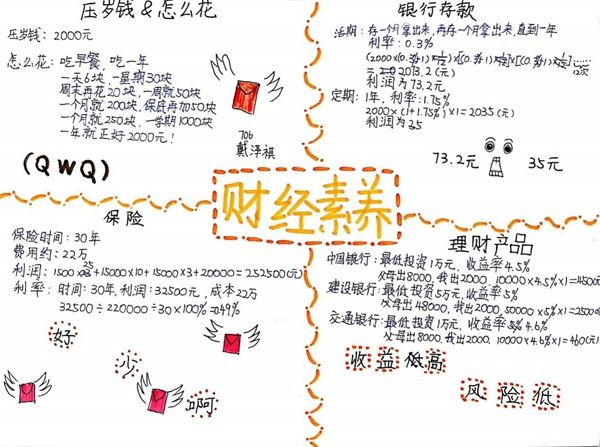 压岁钱&怎么花
压岁钱：2000元
怎么花：吃早餐，吃一年
一天6块，一星期30块
周末再花20块，一周就50块
一个月就200块，保底再加50块
一个月就250块，一学期1000块
一年就正好2000元！
706
戴泽祺
(QWQ)
银行存款
活期：存一个月拿出来，再存一个月拿出来，直到一年
利率：0.3%
利润为73.2元
定期：1年，利率：1.75%
2000×(1+1.75%)×1=2035(元)
利润为35
73.2元 35元
财经素养
保险
保险时间：30年
费用约：22万
利润：1500×25+15000×10+15000×3+20000=252500(元)
利率：时间：30年，利润：32500元，成本22万
32500÷220000÷30×100%≈0.49%
好
少
啊
理财产品
中国银行：最低投资1万元，收益率4.5%
父母出8000，我出2000，10000×4.5%×1=4500(元
建设银行：最低投资5万元，收益率5%
父母出48000，我出2000，50000×5%×1=2500(
交通银行：最低投资1万元，收益率4.6%
父母出8000，我出2000，10000×4.6%×1=460(元)
收益低高
风险低